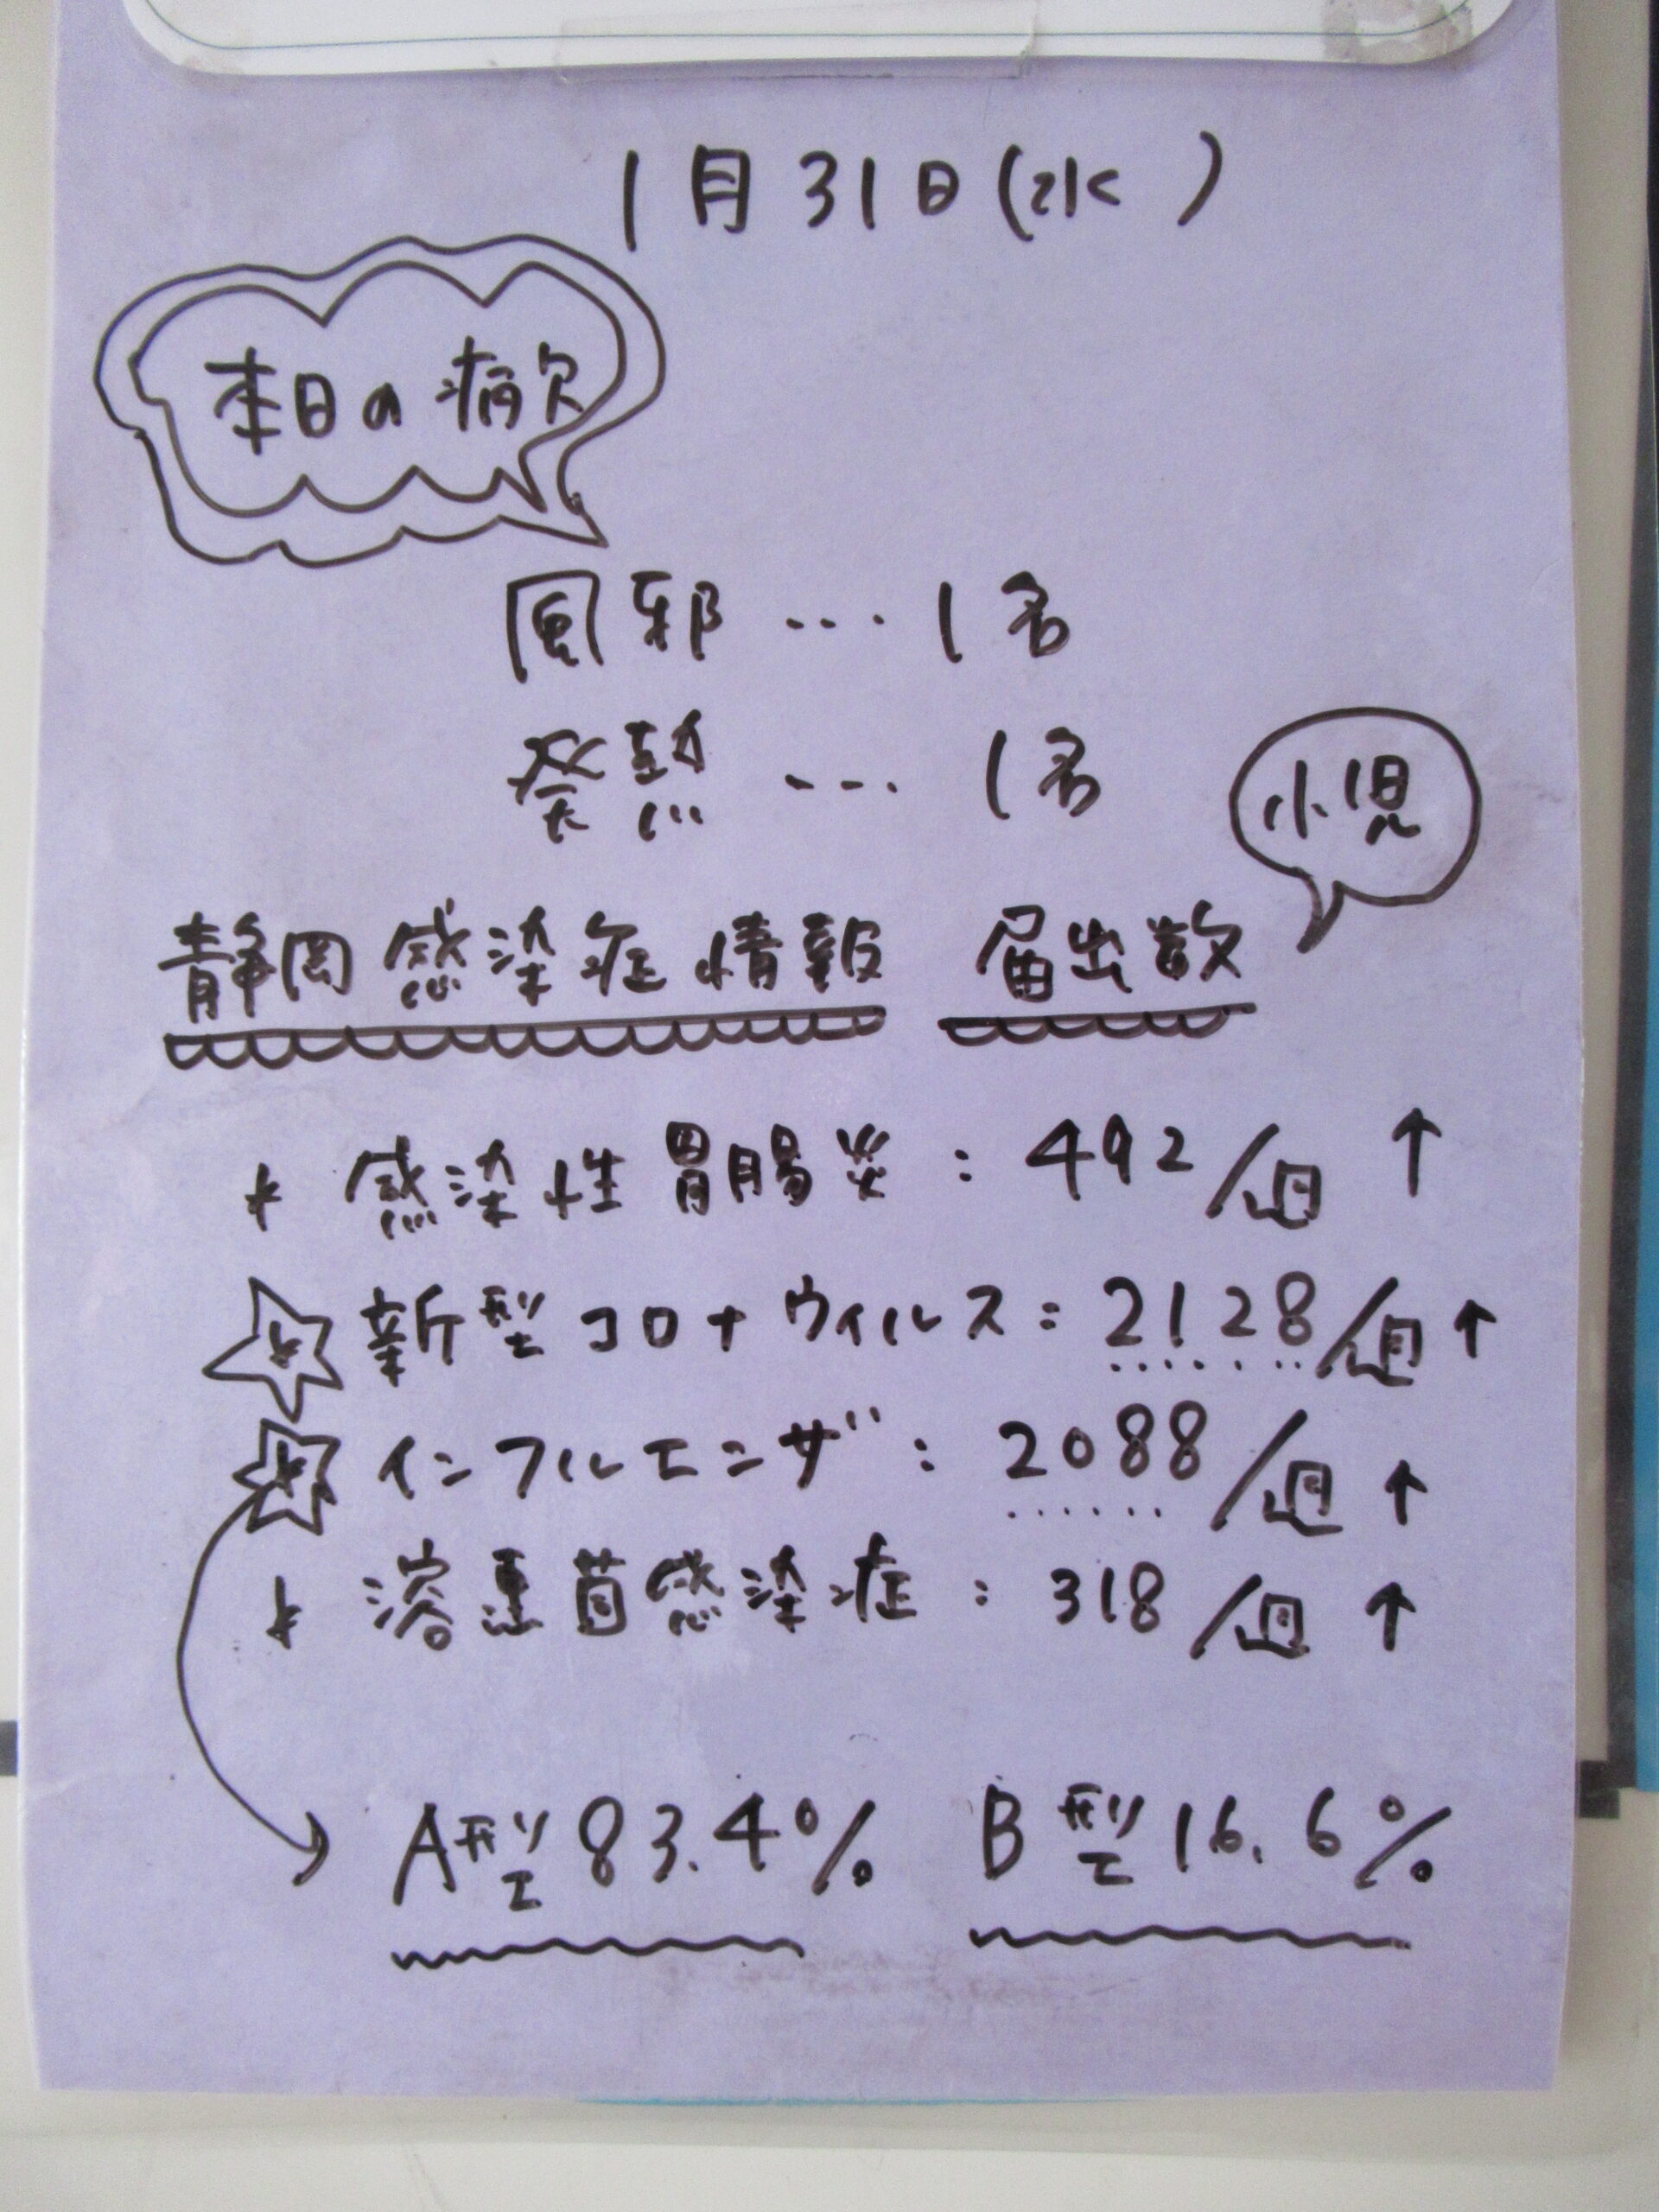 1月31日(水)
本日の病欠
風邪…1名
発熱…1名
小児
静岡感染症情報 届出数
* 感染性胃腸炎:492/週 ↑
☆ 新型コロナウィルス:2128/週 ↑
☆ インフルエンザ:2088/週 ↑
* 溶連菌感染症:318/週 ↑
→ A型83.4% B型16.6%